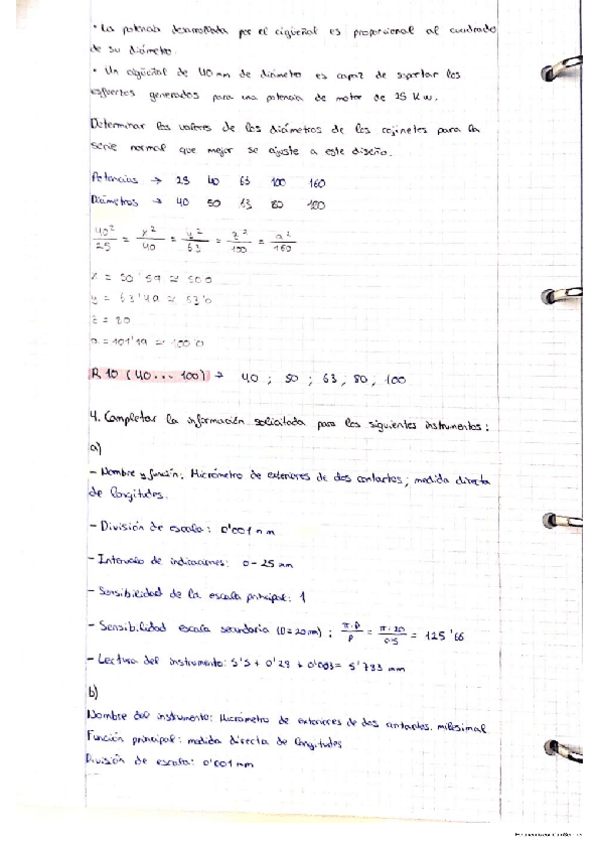 • La potencia desarrollada por el cigüeñal es proporcional al cuadrado
de su diámetro.
• Un cigüeñal de 40 mm de diámetro es capaz de soportar los
esfuerzos generados para una potencia de motor de 25 Kw.
Determinar los valores de los diámetros de los cojinetes para la
serie normal que mejor se ajuste a este diseño.
Potencias → 25 40 63 100 160
Diámetros → 40 50 63 80 100
40²/25 = x²/40 = y²/63 = z²/100 = a²/160
x = 50'59 ≈ 50'0
y = 63'49 ≈ 63'0
z = 80
a = 101'19 ≈ 100'0
R10 (40... 100) → 40 ; 50 ; 63 ; 80 ; 100
4. Completar la información solicitada para los siguientes instrumentos:
a)
- Nombre y función: Micrómetro de exteriores de dos contactos; medida directa
de longitudes.
- División de escala: 0'001 mm
- Intervalo de indicaciones: 0-25 mm
- Sensibilidad de la escala principal: 1
- Sensibilidad escala secundaria (D=20mm) ; π·D/P = π·20/0'5 = 125'66
- Lectura del instrumento: 5'5 + 0'28 + 0'003 = 5'783 mm
b)
Nombre del instrumento: Micrómetro de exteriores de dos contactos. milesimal
Función principal: medida directa de longitudes
División de escala: 0'001 mm